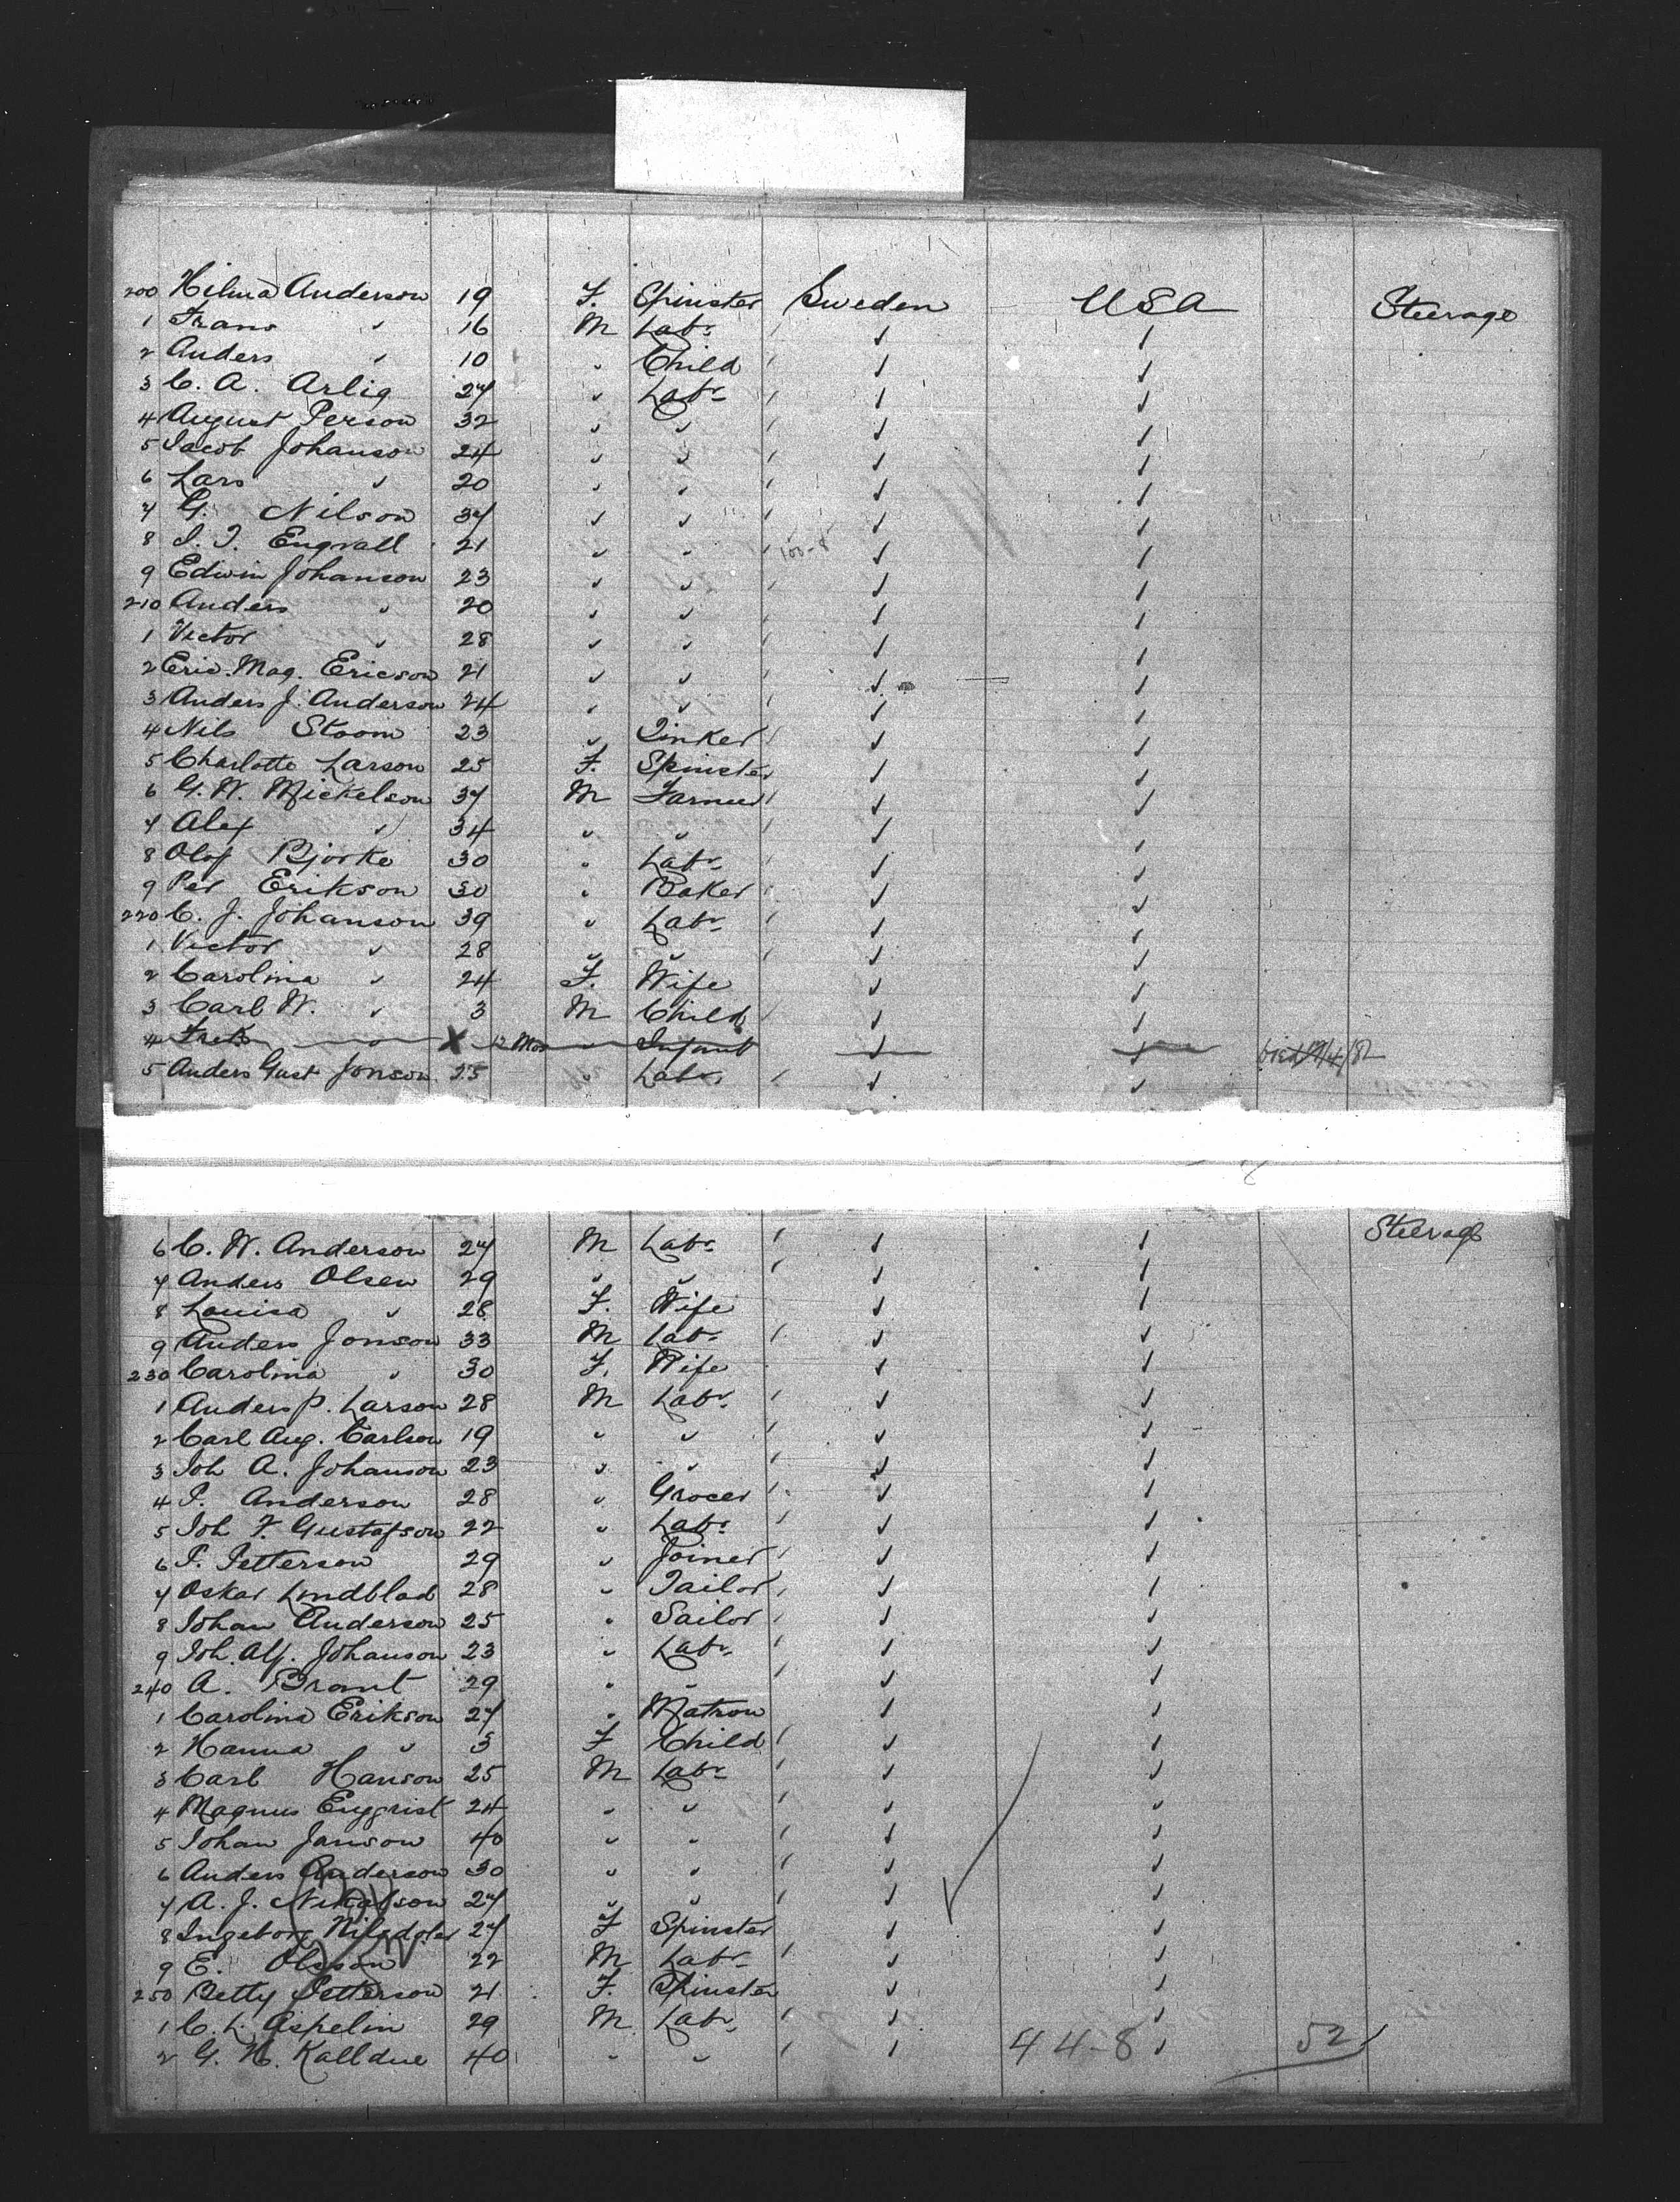 200 Hilma Anderson 19 F. Spinster Sweden USA Steerage
1 Frans " 16 M Labr
2 Anders " 10 " Child
3 C. A. Arlig 27 " Labr
4 August Person 32 " "
5 Jacob Johanson 24 " "
6 Lars " 20 " "
7 G. Nilson 37 " "
8 J. J. Engvall 21 " "
9 Edwin Johanson 23 " "
210 Anders " 20 " "
1 Victor " 28 " "
2 Eric. Mag. Ericson 21 " "
3 Anders J. Anderson 24 " "
4 Nils Stoom 23 " Tinker
5 Charlotte Larson 25 F. Spinster
6 G. W. Mickelson 37 M Farmer
7 Alex " 34 " "
8 Olof Bjorke 30 " Labr
9 Per Erikson 30 " Baker
220 C. J. Johanson 39 " Labr
1 Victor " 28 " "
2 Carolina " 24 F. Wife
3 Carl W. " 3 M Child
4 " X 12 Mos " Infant died 19/4/82
5 Anders Gust Jonson 25 " Labr
6 C. W. Anderson 27 M Labr Steerage
7 Anders Olsen 29 " "
8 Louisa " 28 F. Wife
9 Anders Jonson 33 M Labr
230 Carolina " 30 F. Wife
1 Anders P. Larson 28 M Labr
2 Carl Aug. Carlson 19 " "
3 Joh A. Johanson 23 " "
4 P. Anderson 28 " Grocer
5 Joh F. Gustafson 22 " Labr
6 P. Petterson 29 " Joiner
7 Oskar Lindblad 28 " Tailor
8 Johan Anderson 25 " Sailor
9 Joh. Alf. Johanson 23 " Labr
240 A. Brant 29 " "
1 Carolina Erikson 27 " Matron
2 Hanna " 3 F Child
3 Carl Hanson 25 M Labr
4 Magnus Engqrist 24 " "
5 Johan Janson 40 " "
6 Anders Anderson 30 " "
7 A. J. 27 " "
8 Ingeborg Nilsdoter 27 F Spinster
9 E. Olsson 22 M Labr
250 Betty Petterson 21 F. Spinster
1 C. L. Aspelin 29 M Labr
2 G. H. Kalldue 40 " " 44-8 52